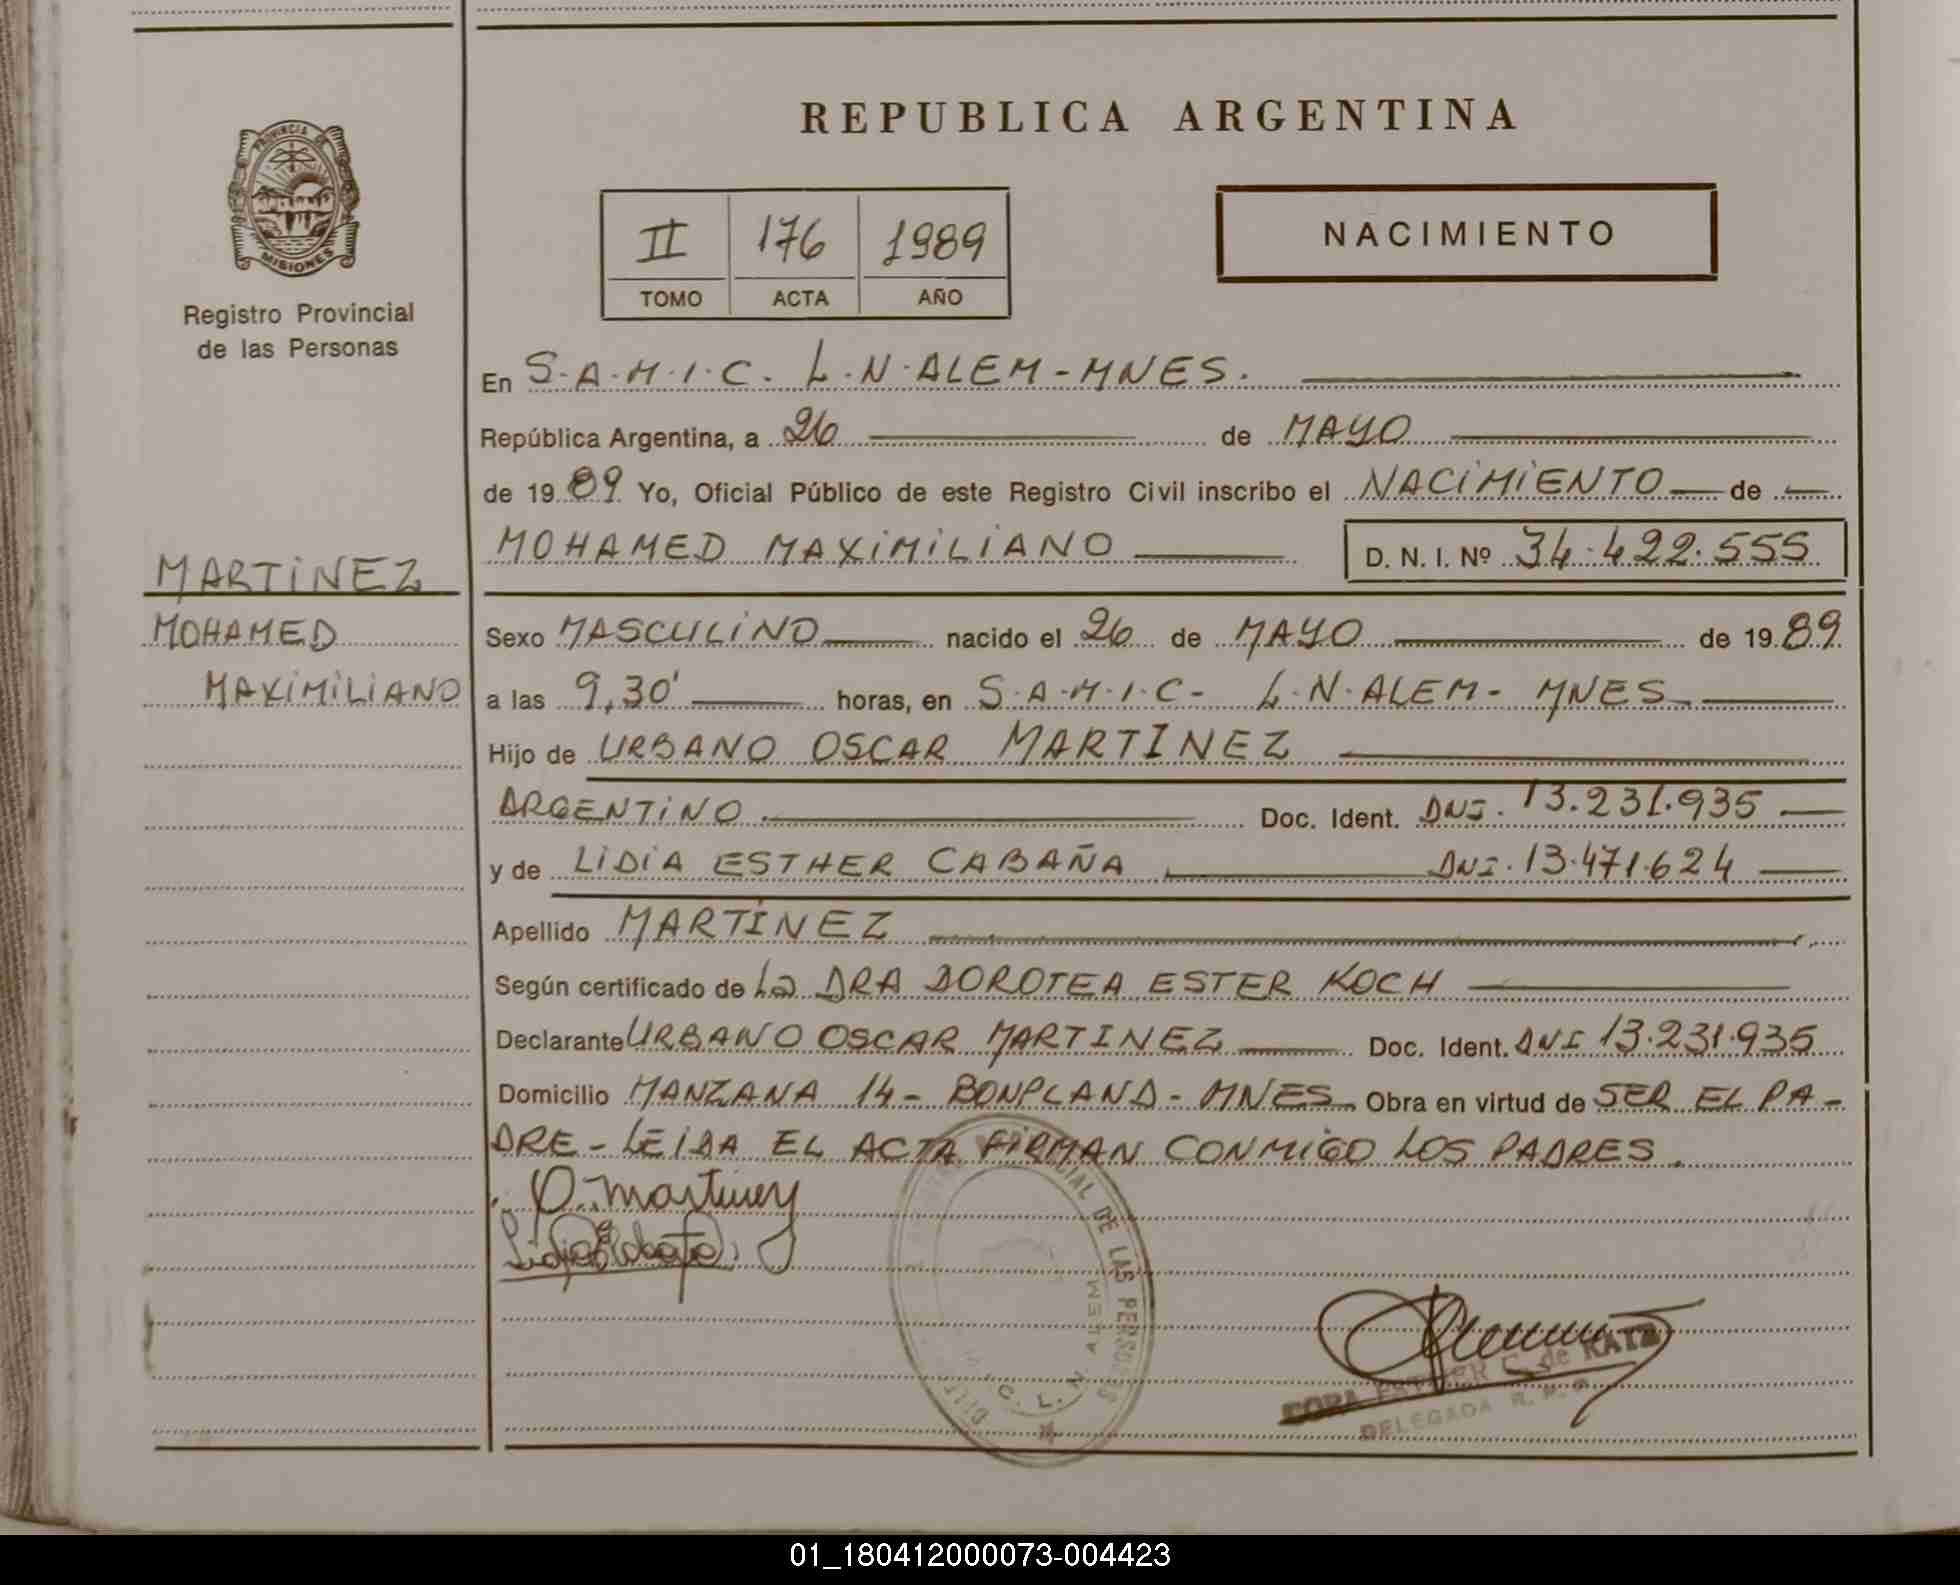 REPUBLICA ARGENTINA
PROVINCIA DE
MISIONES
Registro Provincial
de las Personas
II 176 1989
TOMO ACTA AÑO
NACIMIENTO
En S.A.M.I.C. L.N.ALEM-MNES.
República Argentina, a 26 de MAYO
de 1989 Yo, Oficial Público de este Registro Civil inscribo el NACIMIENTO de
MOHAMED MAXIMILIANO D. N. I. Nº 34.422.555
MARTINEZ
MOHAMED
MAXIMILIANO
Sexo MASCULINO nacido el 26 de MAYO de 1989
a las 9,30' horas, en S.A.M.I.C- L.N.ALEM- MNES
Hijo de URBANO OSCAR MARTINEZ
ARGENTINO Doc. Ident. DNI. 13.231.935
y de LIDIA ESTHER CABAÑA DNI. 13.471.624
Apellido MARTINEZ
Según certificado de La DRA DOROTEA ESTER KOCH
Declarante URBANO OSCAR MARTINEZ Doc. Ident. DNI 13.231.935
Domicilio MANZANA 14- BONPLAND- MNES Obra en virtud de SER EL PA-
DRE - LEIDA EL ACTA FIRMAN CONMIGO LOS PADRES.
O. Martinez
DE LAS PERSONAS
L. N. ALEM
ESTHER C. de KATZ
DELEGADA R. P. P.
01_180412000073-004423